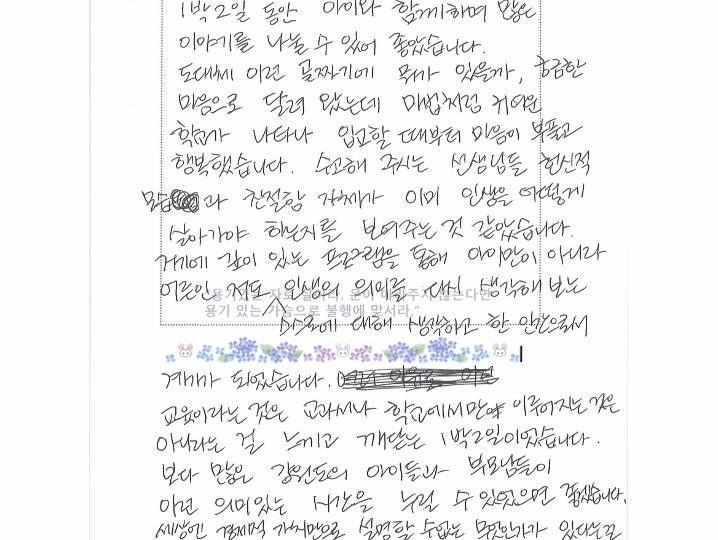 1박2일 동안 아이와 함께하며 많은
이야기를 나눌 수 있어 좋았습니다.
도대체 이런 골짜기에 뭐가 있을까, 궁금한
마음으로 달려 왔는데 마법처럼 귀여운
학교가 나타나 입교할 때부터 마음이 부풀고
행복했습니다. 수고해 주시는 선생님들 헌신적
모습과 친절함 자체가 이미 인생을 어떻게
살아가야 하는지를 보여주는 것 같았습니다.
거기에 깊이 있는 프로그램을 통해 아이만이 아니라
어른인 저도 인생의 의미를 다시 생각해 보는
용기있는 자로 살아라. 운이 따라주지 않는다면
용기 있는 가슴으로 불행에 맞서라."
스스로에 대해 생각하고 한 인간으로서
계기가 되었습니다.
교육이라는 것은 교과서나 학교에서만 이루어지는 것은
아니라는 걸 느끼고 깨닫는 1박2일이었습니다.
보다 많은 강원도의 아이들과 부모님들이
이런 의미있는 시간을 누릴 수 있었으면 좋겠습니다.
세상엔 경제적 가치만으로 설명할 수 없는 무엇인가가 있다는 것